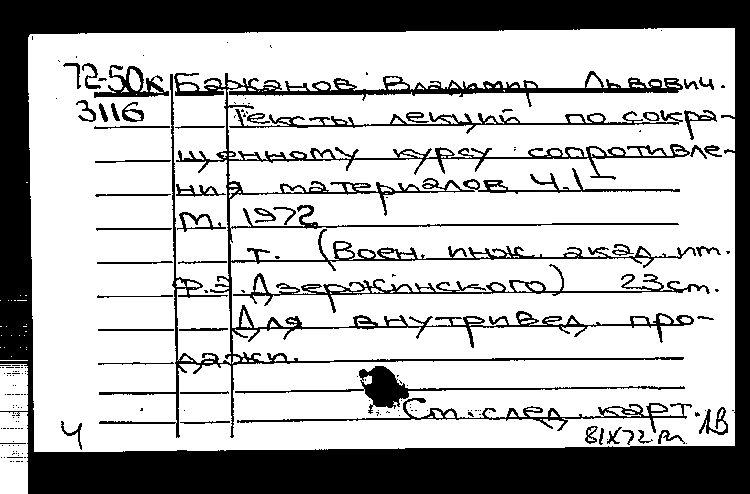 72-50к Бажанов, Владимир Львович.
3116 Тексты лекций по сокра-
щенному курсу сопротивле-
ния материалов. Ч.1-
М. 1972
т. (Воен. инж. акад. им.
Ф.Э. Дзержинского) 23см.
Для внутривед. про-
дажи.
См. след. карт.
Ч